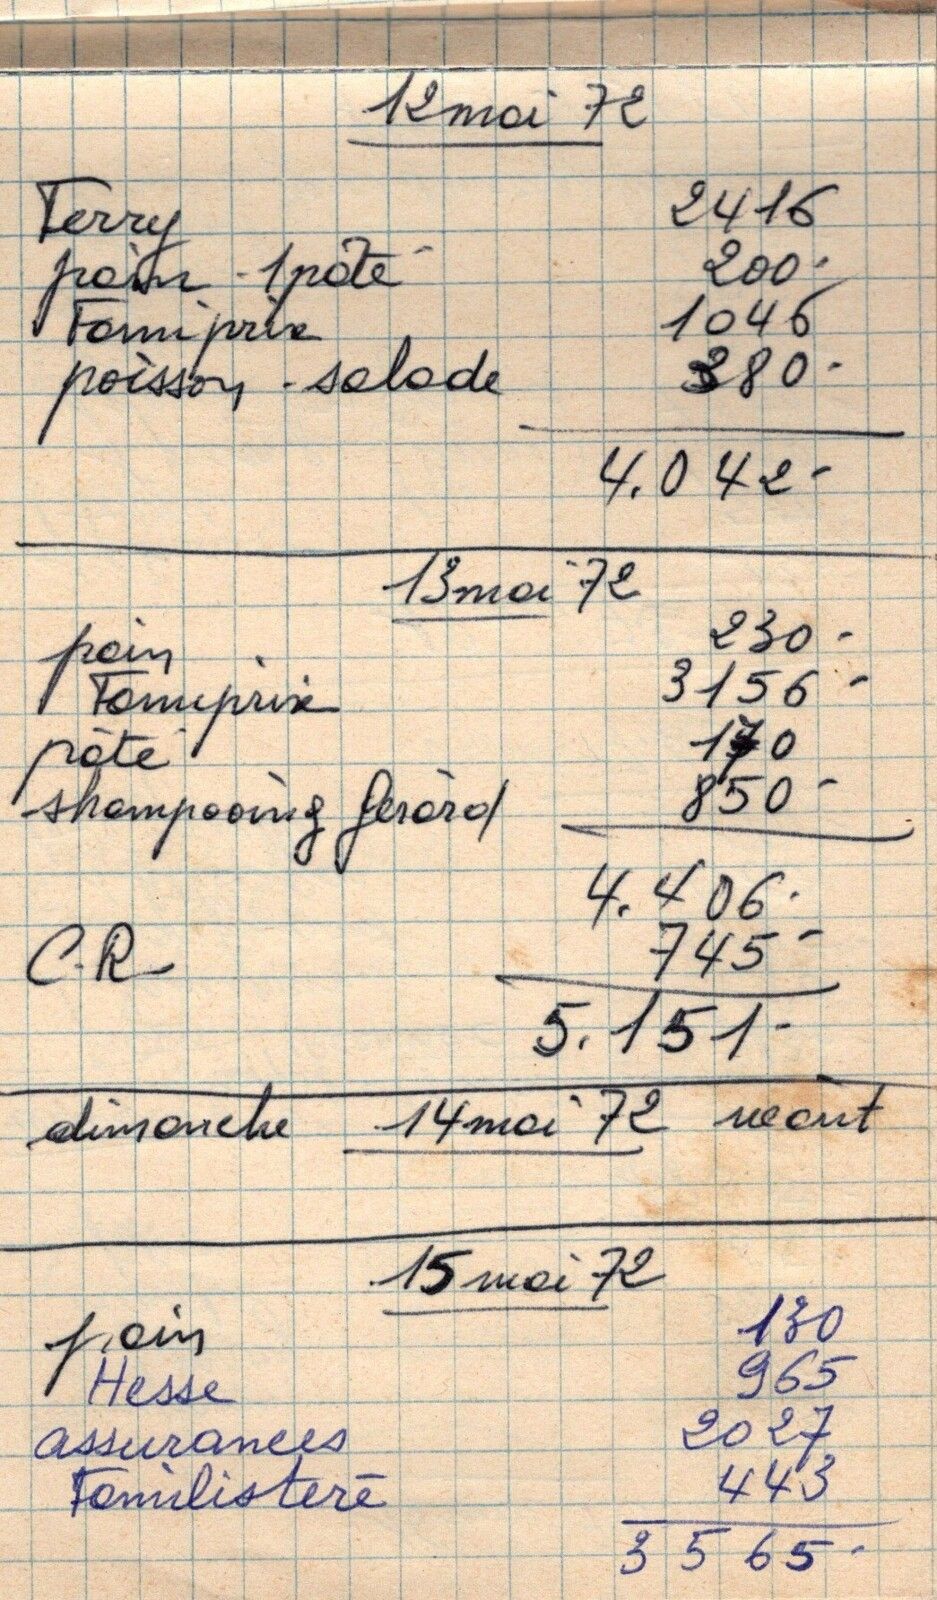 12 mai 72
Ferry 2416
pain - 1 pâté 200-
Famiprix 1046
poisson - salade 380-
4.042-
13 mai 72
pain 230-
Famiprix 3156-
pâté 170
shampooing Gérard 850-
4.406-
C.R 745-
5.151-
dimanche 14 mai 72 néant
15 mai 72
pain 130
Hesse 965
assurances 2027
Familistère 443
3565-